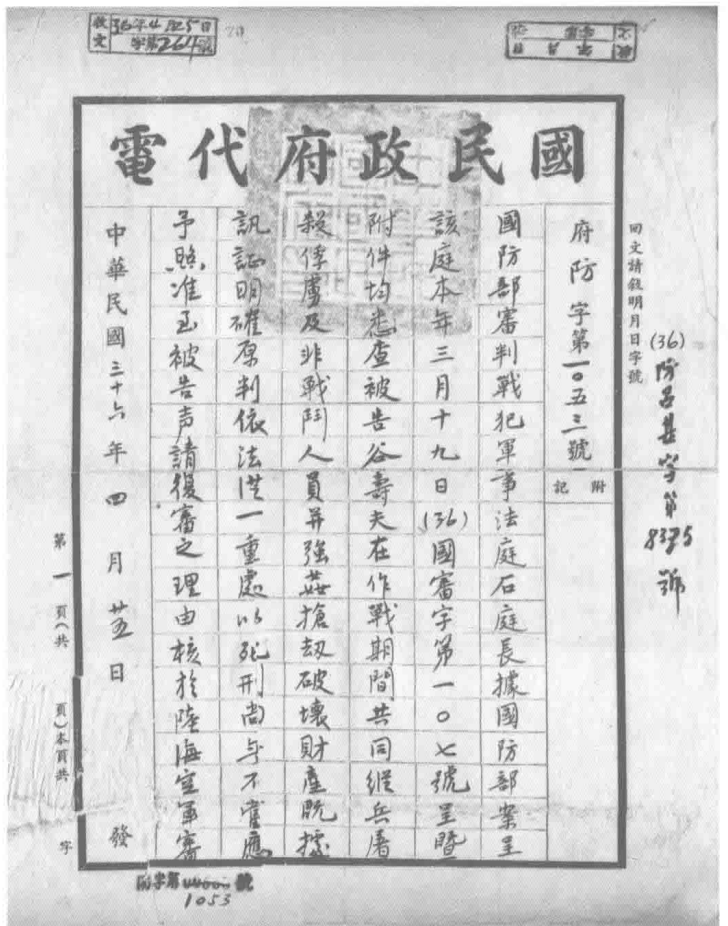 收文 36年4月25日
字第264號
國民政府代電
回文請敘明月日字號
(36)防呂甚字第8375號
府防字第一〇五三號
附記
國防部審判戰犯軍事法庭石庭長據國防部案呈
該庭本年三月十九日(36)國審字第一〇七號呈暨
附件均悉查被告谷壽夫在作戰期間共同縱兵屠
殺俘虜及非戰鬥人員并強姦搶劫破壞財產既據
訊証明確原判依法從一重處以死刑尚无不當應
予照准至被告声請復審之理由核於陸海空軍審
中華民國三十六年四月廿五日 發
第一頁(共 頁)本頁共 字
附字第 號
1053